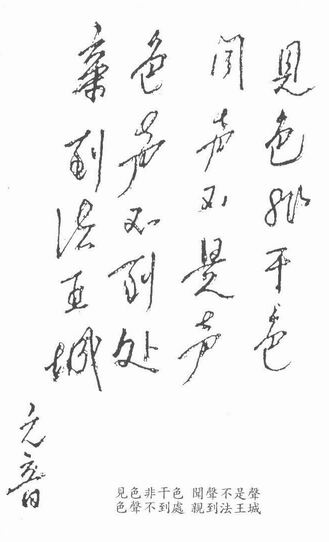 見色非干色
闻声不是声
色声不到处
亲到法王城
元音
見色非干色 聞聲不是聲
色聲不到處 親到法王城